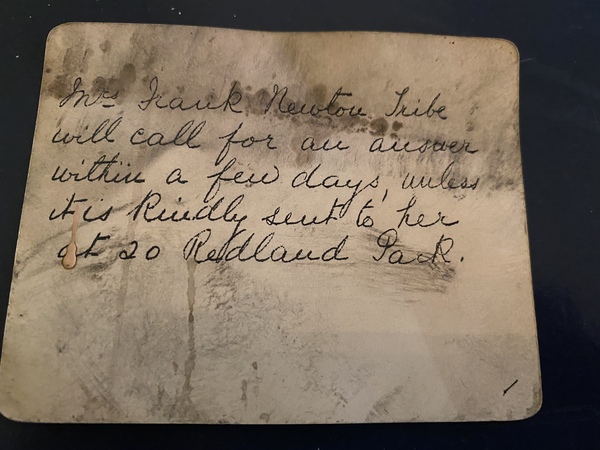 Mrs Frank Newton Tribe
will call for an answer
within a few days, unless
it is kindly sent to her
at 20 Redland Park.